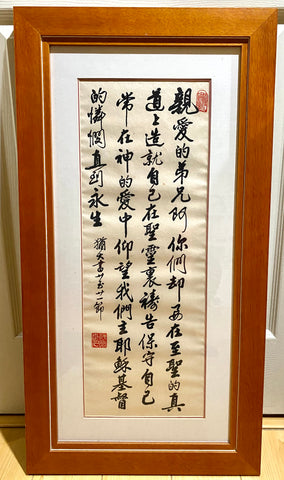 親愛的弟兄阿你們却要在至聖的真
道上造就自己在聖靈裏禱告保守自己
常在神的愛中仰望我們主耶穌基督
的憐憫直到永生
猶大書廿至廿一節